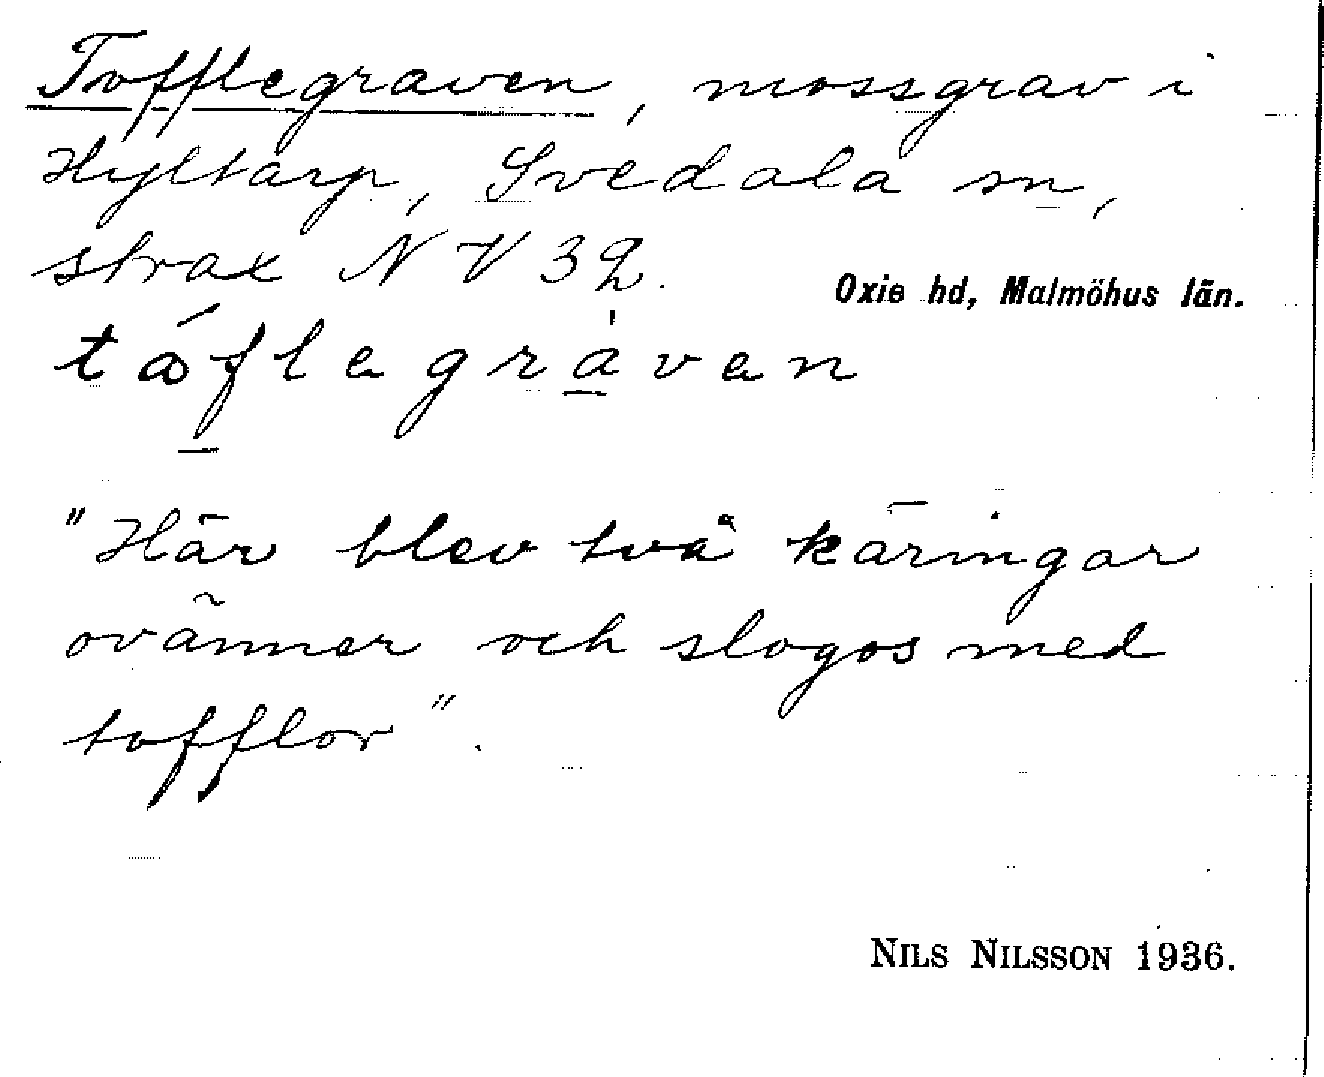 Tofflegraven, mossgrav i
Hyltarp, Svedala sn,
strax NV 32.
Oxie hd, Malmöhus län.
tåflegràven
"Här blev två käringar
ovänner och slogos med
tofflor".
NILS NILSSON 1936.